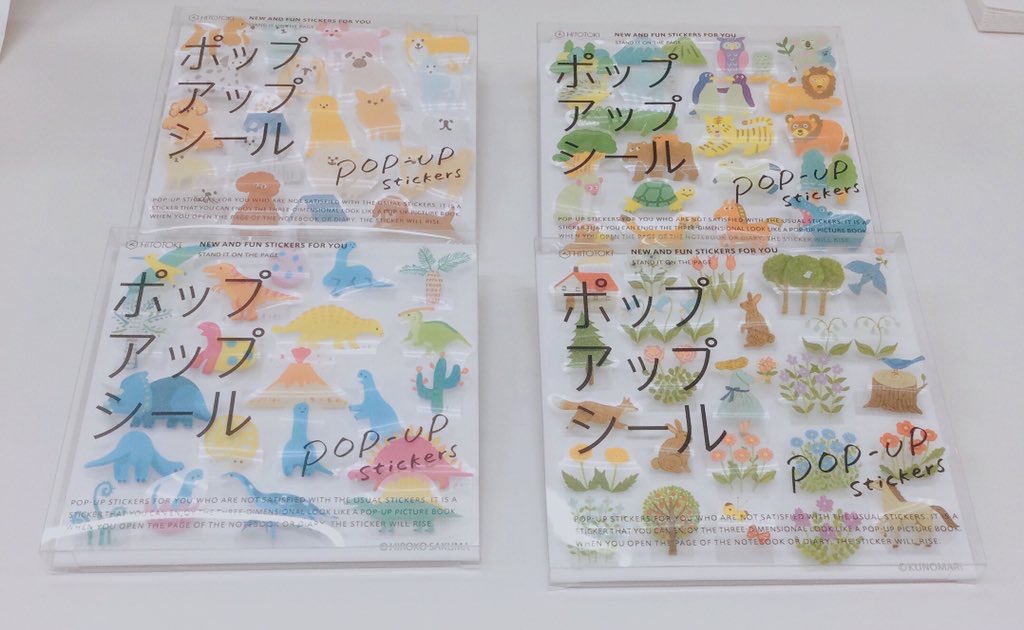 HITOTOKI NEW AND FUN STICKERS FOR YOU
STAND IT ON THE PAGE
ポップ
アップ
シール
POP-UP
stickers
POP-UP STICKERS FOR YOU WHO ARE NOT SATISFIED WITH THE USUAL STICKERS. IT IS A
STICKER THAT YOU CAN ENJOY THE THREE-DIMENSIONAL LOOK LIKE A POP-UP PICTURE BOOK.
WHEN YOU OPEN THE PAGE OF THE NOTEBOOK OR DIARY, THE STICKER WILL RISE.
HITOTOKI NEW AND FUN STICKERS FOR YOU
STAND IT ON THE PAGE
ポップ
アップ
シール
POP-UP
stickers
POP-UP STICKERS FOR YOU WHO ARE NOT SATISFIED WITH THE USUAL STICKERS. IT IS A
STICKER THAT YOU CAN ENJOY THE THREE-DIMENSIONAL LOOK LIKE A POP-UP PICTURE BOOK.
WHEN YOU OPEN THE PAGE OF THE NOTEBOOK OR DIARY, THE STICKER WILL RISE.
HITOTOKI NEW AND FUN STICKERS FOR YOU
STAND IT ON THE PAGE
ポップ
アップ
シール
POP-UP
stickers
POP-UP STICKERS FOR YOU WHO ARE NOT SATISFIED WITH THE USUAL STICKERS. IT IS A
STICKER THAT YOU CAN ENJOY THE THREE-DIMENSIONAL LOOK LIKE A POP-UP PICTURE BOOK.
WHEN YOU OPEN THE PAGE OF THE NOTEBOOK OR DIARY, THE STICKER WILL RISE.
©HIROKO SAKUMA
HITOTOKI NEW AND FUN STICKERS FOR YOU
STAND IT ON THE PAGE
ポップ
アップ
シール
POP-UP
stickers
POP-UP STICKERS FOR YOU WHO ARE NOT SATISFIED WITH THE USUAL STICKERS. IT IS A
STICKER THAT YOU CAN ENJOY THE THREE-DIMENSIONAL LOOK LIKE A POP-UP PICTURE BOOK.
WHEN YOU OPEN THE PAGE OF THE NOTEBOOK OR DIARY, THE STICKER WILL RISE.
©KUNOMARI